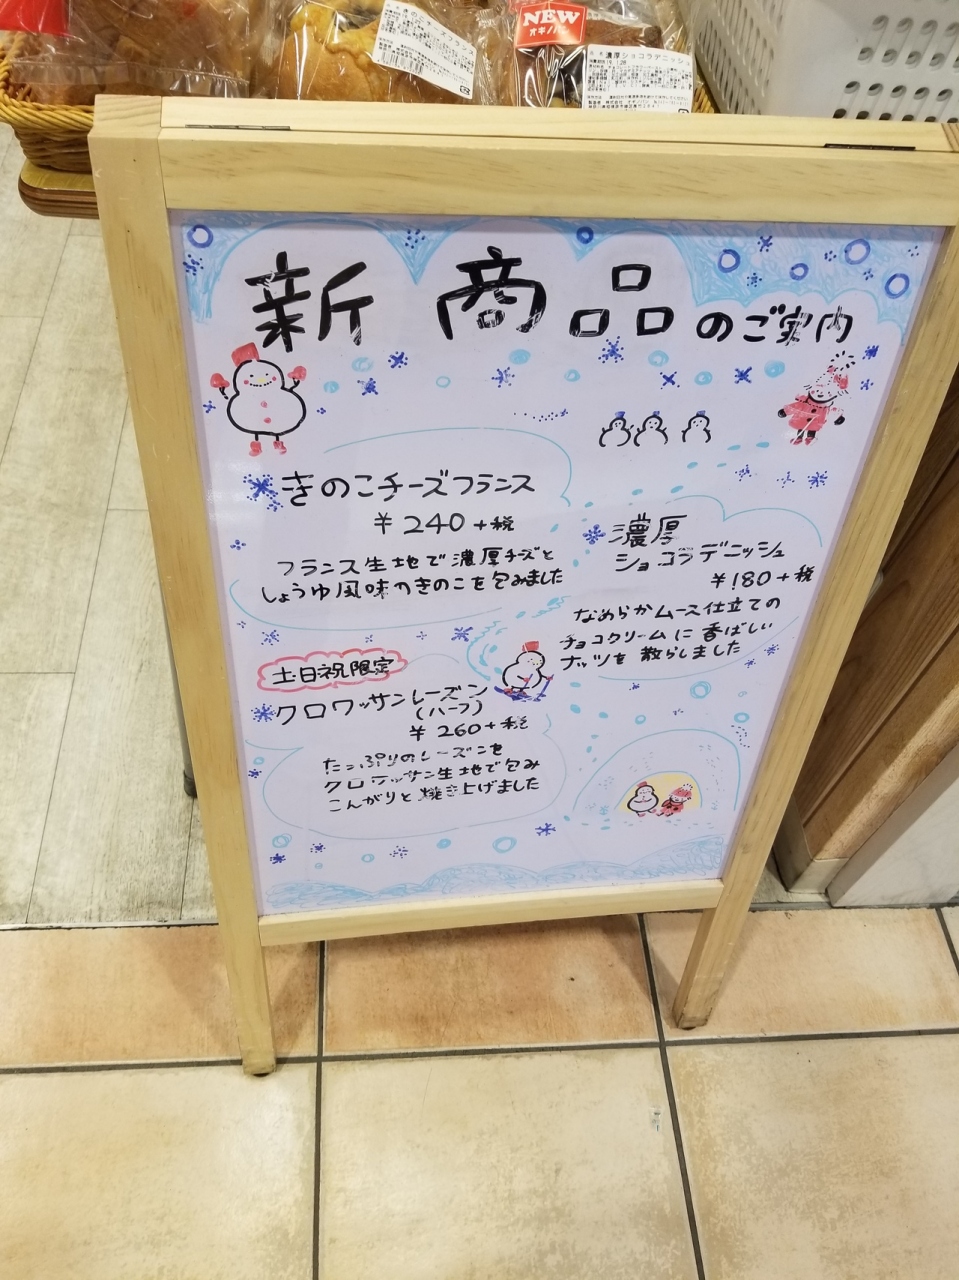 きのこチーズフランス
NEW
オキノパン
濃厚ショコラデニッシュ
新商品のご案内
きのこチーズフランス
¥240+税
フランス生地で濃厚チーズと
しょうゆ風味のきのこを包みました
濃厚
ショコラデニッシュ
¥180+税
なめらかムース仕立ての
チョコクリームに香ばしい
ナッツを散らしました
土・日・祝限定
クロワッサンレーズン
(ハーフ)
¥260+税
たっぷりのレーズンを
クロワッサン生地で包み
こんがりと焼き上げました